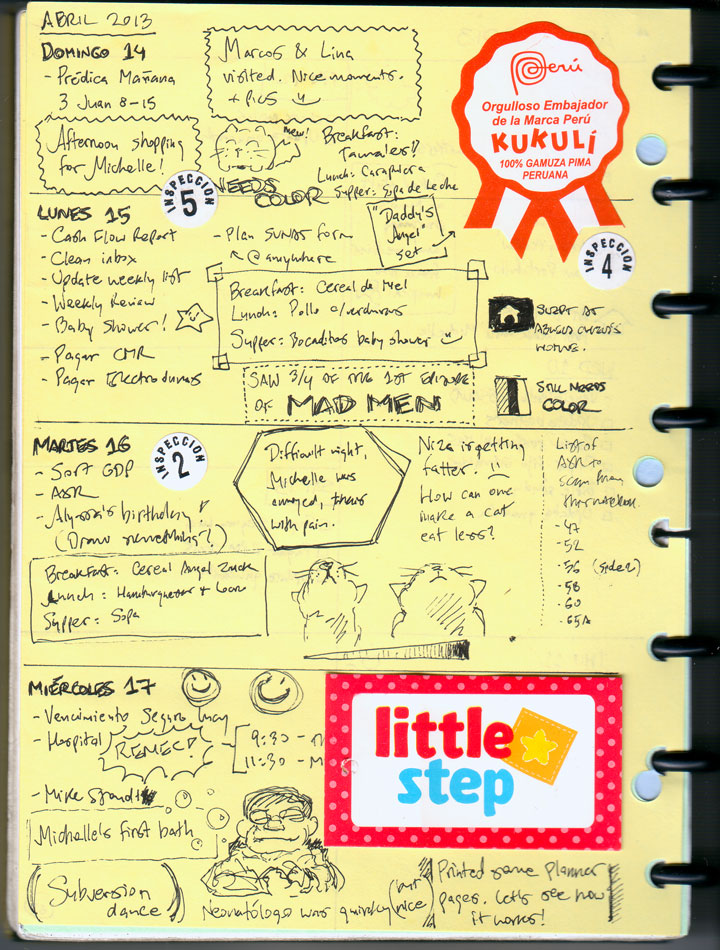 ABRIL 2013
DOMINGO 14
- Prédica Mañana
3 Juan 8-15
Marcos & Lina
visited. Nice moments.
+ pics
Afternoon shopping
for Michelle!
new!
NEEDS
COLOR
Breakfast:
Tamales!
Lunch: Carapulcra
Supper: Sopa de Leche
Perú
Orgulloso Embajador
de la Marca Perú
KUKULÍ
100% GAMUZA PIMA
PERUANA
INSPECCION
5
LUNES 15
- Cash Flow Report
- Clean inbox
- Update weekly list
- Weekly Review
- Baby Shower!
- Pagar CMR
- Pagar Electrodunas
- Plan SUNAT form
@anywhere
"Daddy's
Angel"
set
INSPECCION
4
Breakfast: Cereal de Miel
Lunch: Pollo c/verduras
Supper: Bocaditos baby shower
SAW 3/4 OF THE 1ST EPISODE
OF MAD MEN
SLEPT AT
HOUSE.
STILL NEEDS
COLOR
MARTES 16
INSPECCION
2
- Sort GDP
- ASR
- Alyssa's birthday!
(Draw something?)
Difficult night,
Michelle was
annoyed,
with pain.
Niza is getting
fatter!
How can one
make a cat
eat less?
List of
ASR to
scan from
- 47
- 52
- 56 (side 2)
- 58
- 60
- 65A
Breakfast: Cereal Angel Zuck
Lunch: Hamburguesa +
Supper: Sopa
MIÉRCOLES 17
- Vencimiento Seguro
- Hospital
REMEC!
9:30 -
11:30 - M
- Mike
Michelle's first bath
little
step
(Subversion
dance)
Neonatólogo was quirky (but
nice)
Printed some planner
pages. Let's see how
it works!